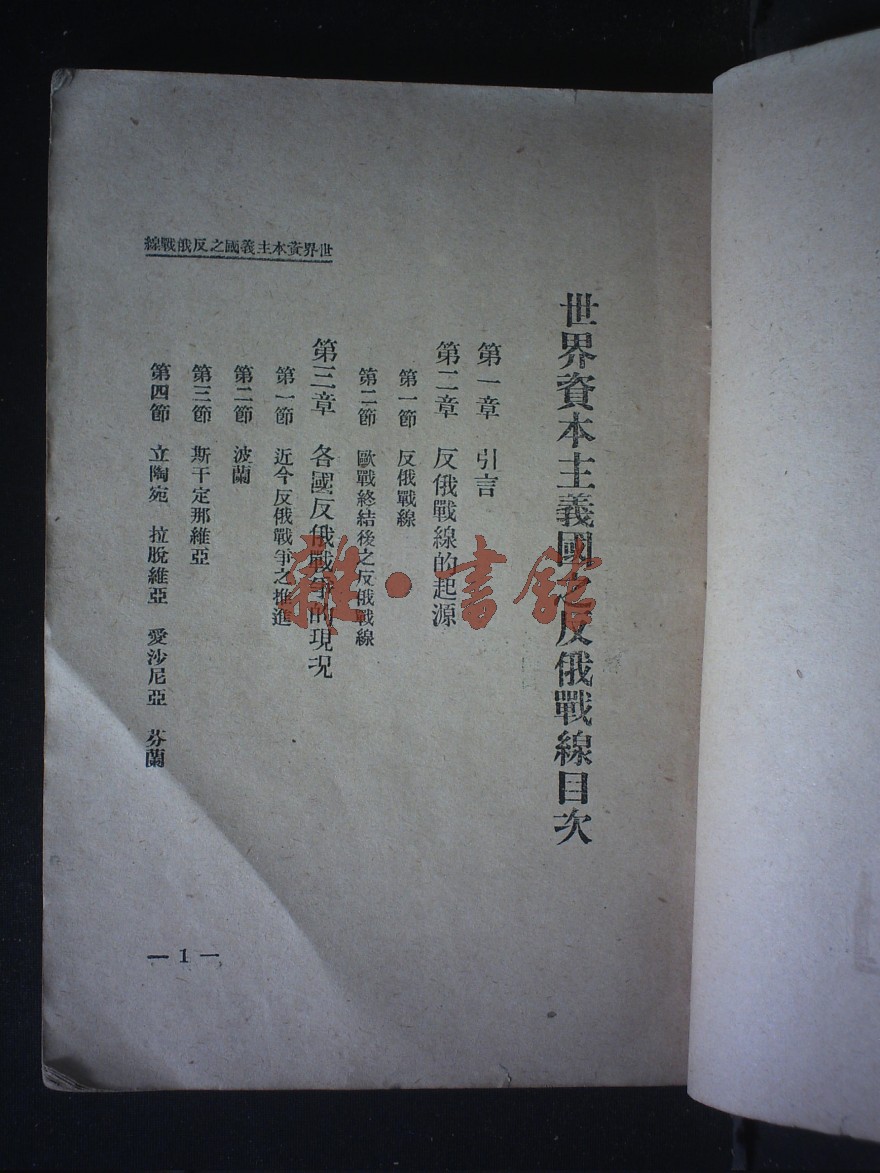 世界資本主義國之反俄戰線
世界資本主義國之反俄戰線目次
第一章 引言
第二章 反俄戰線的起源
第一節 反俄戰線
第二節 歐戰終結後之反俄戰線
第三章 各國反俄戰爭的現況
第一節 近今反俄戰爭之推進
第二節 波蘭
第三節 斯干定那維亞
第四節 立陶宛 拉脫維亞 愛沙尼亞 芬蘭
— 1 —
雜·書館